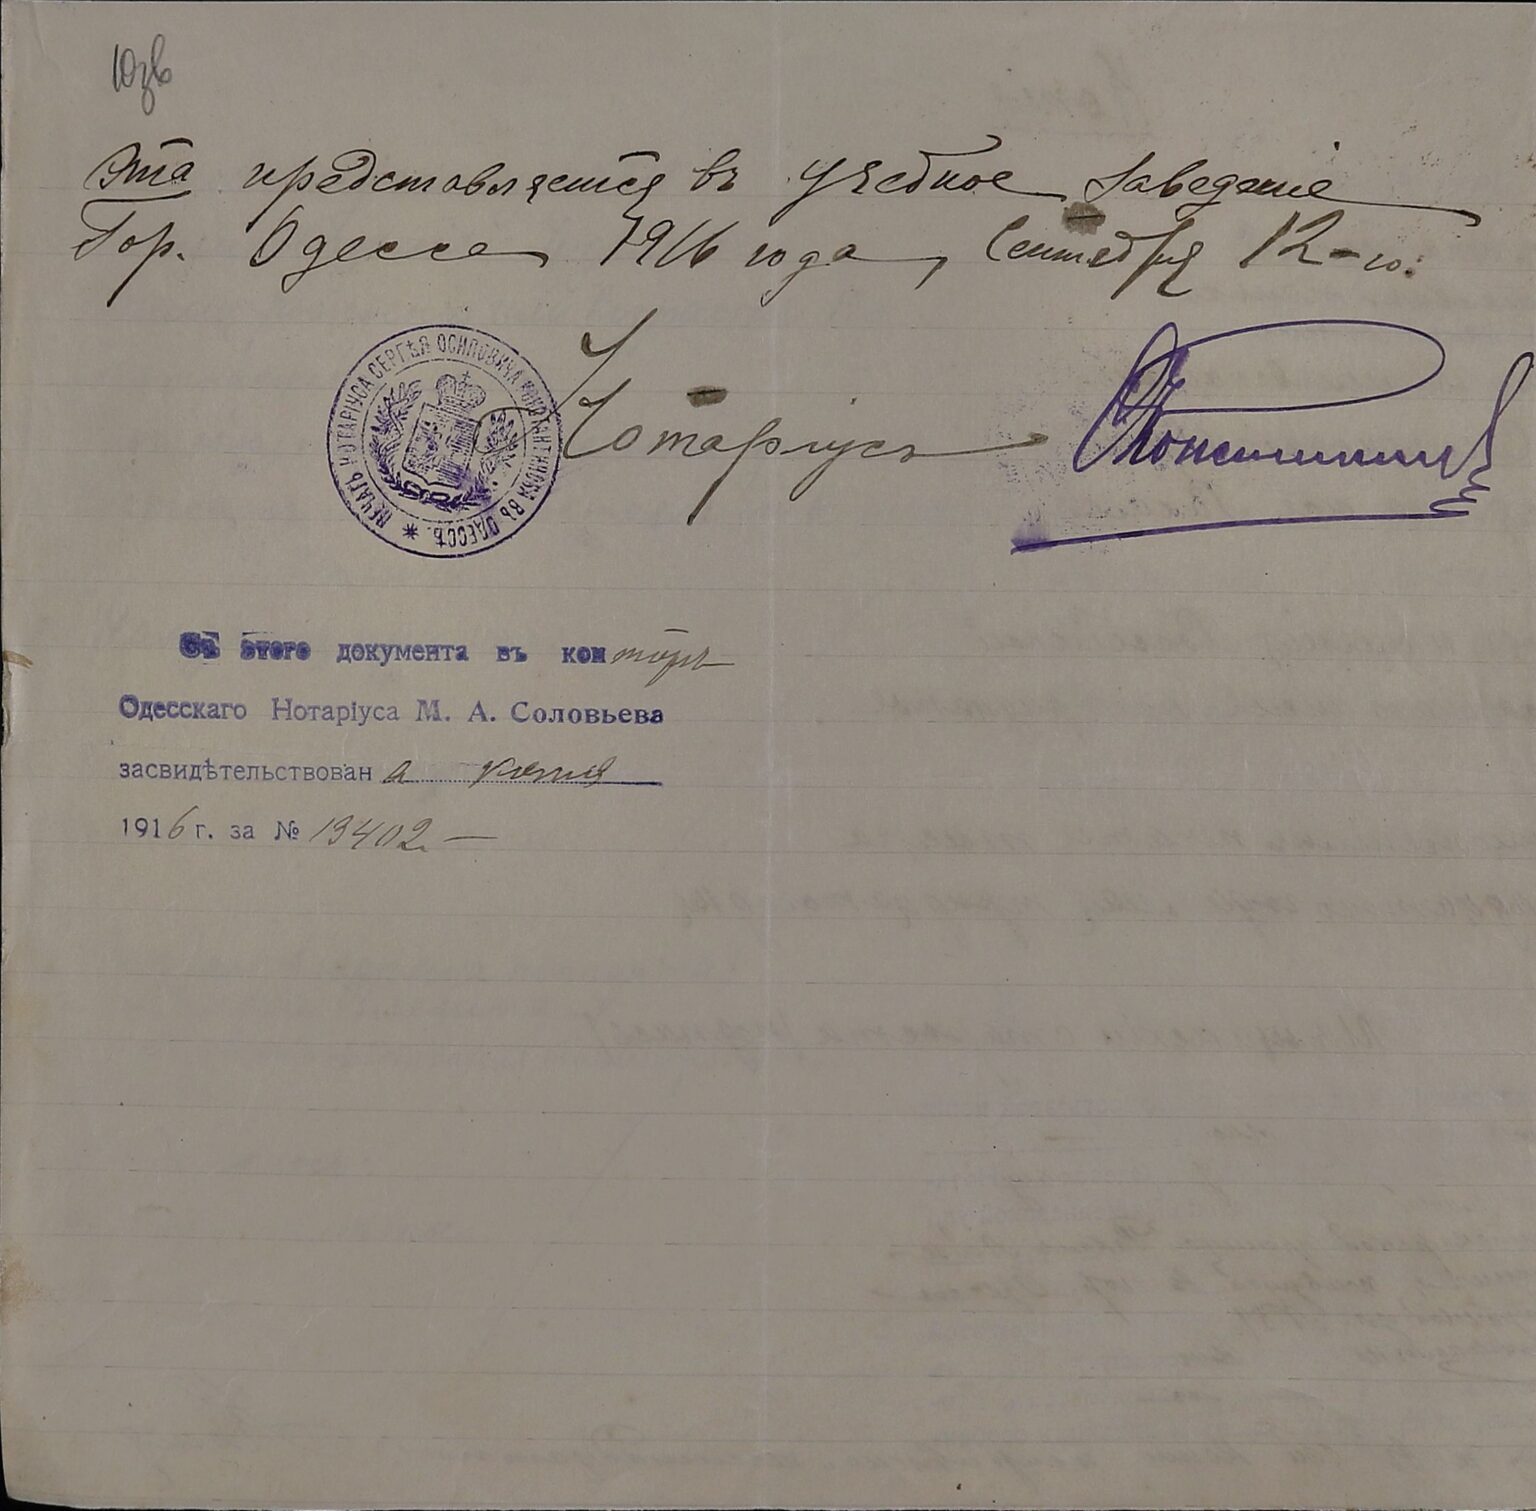 эта представляется въ учебное заведенiе
Гор. Одесса 1916 года, Сентября 12-го.
ПЕЧАТЬ НОТАРІУСА СЕРГѢЯ ОСИПОВИЧА КОНСТАНТИНОВА ВЪ ОДЕССѢ. *
Нотарiусъ
Съ этого документа въ конторѣ
Одесскаго Нотаріуса М. А. Соловьева
засвидѣтельствована копия
1916 г. за № 13402.—